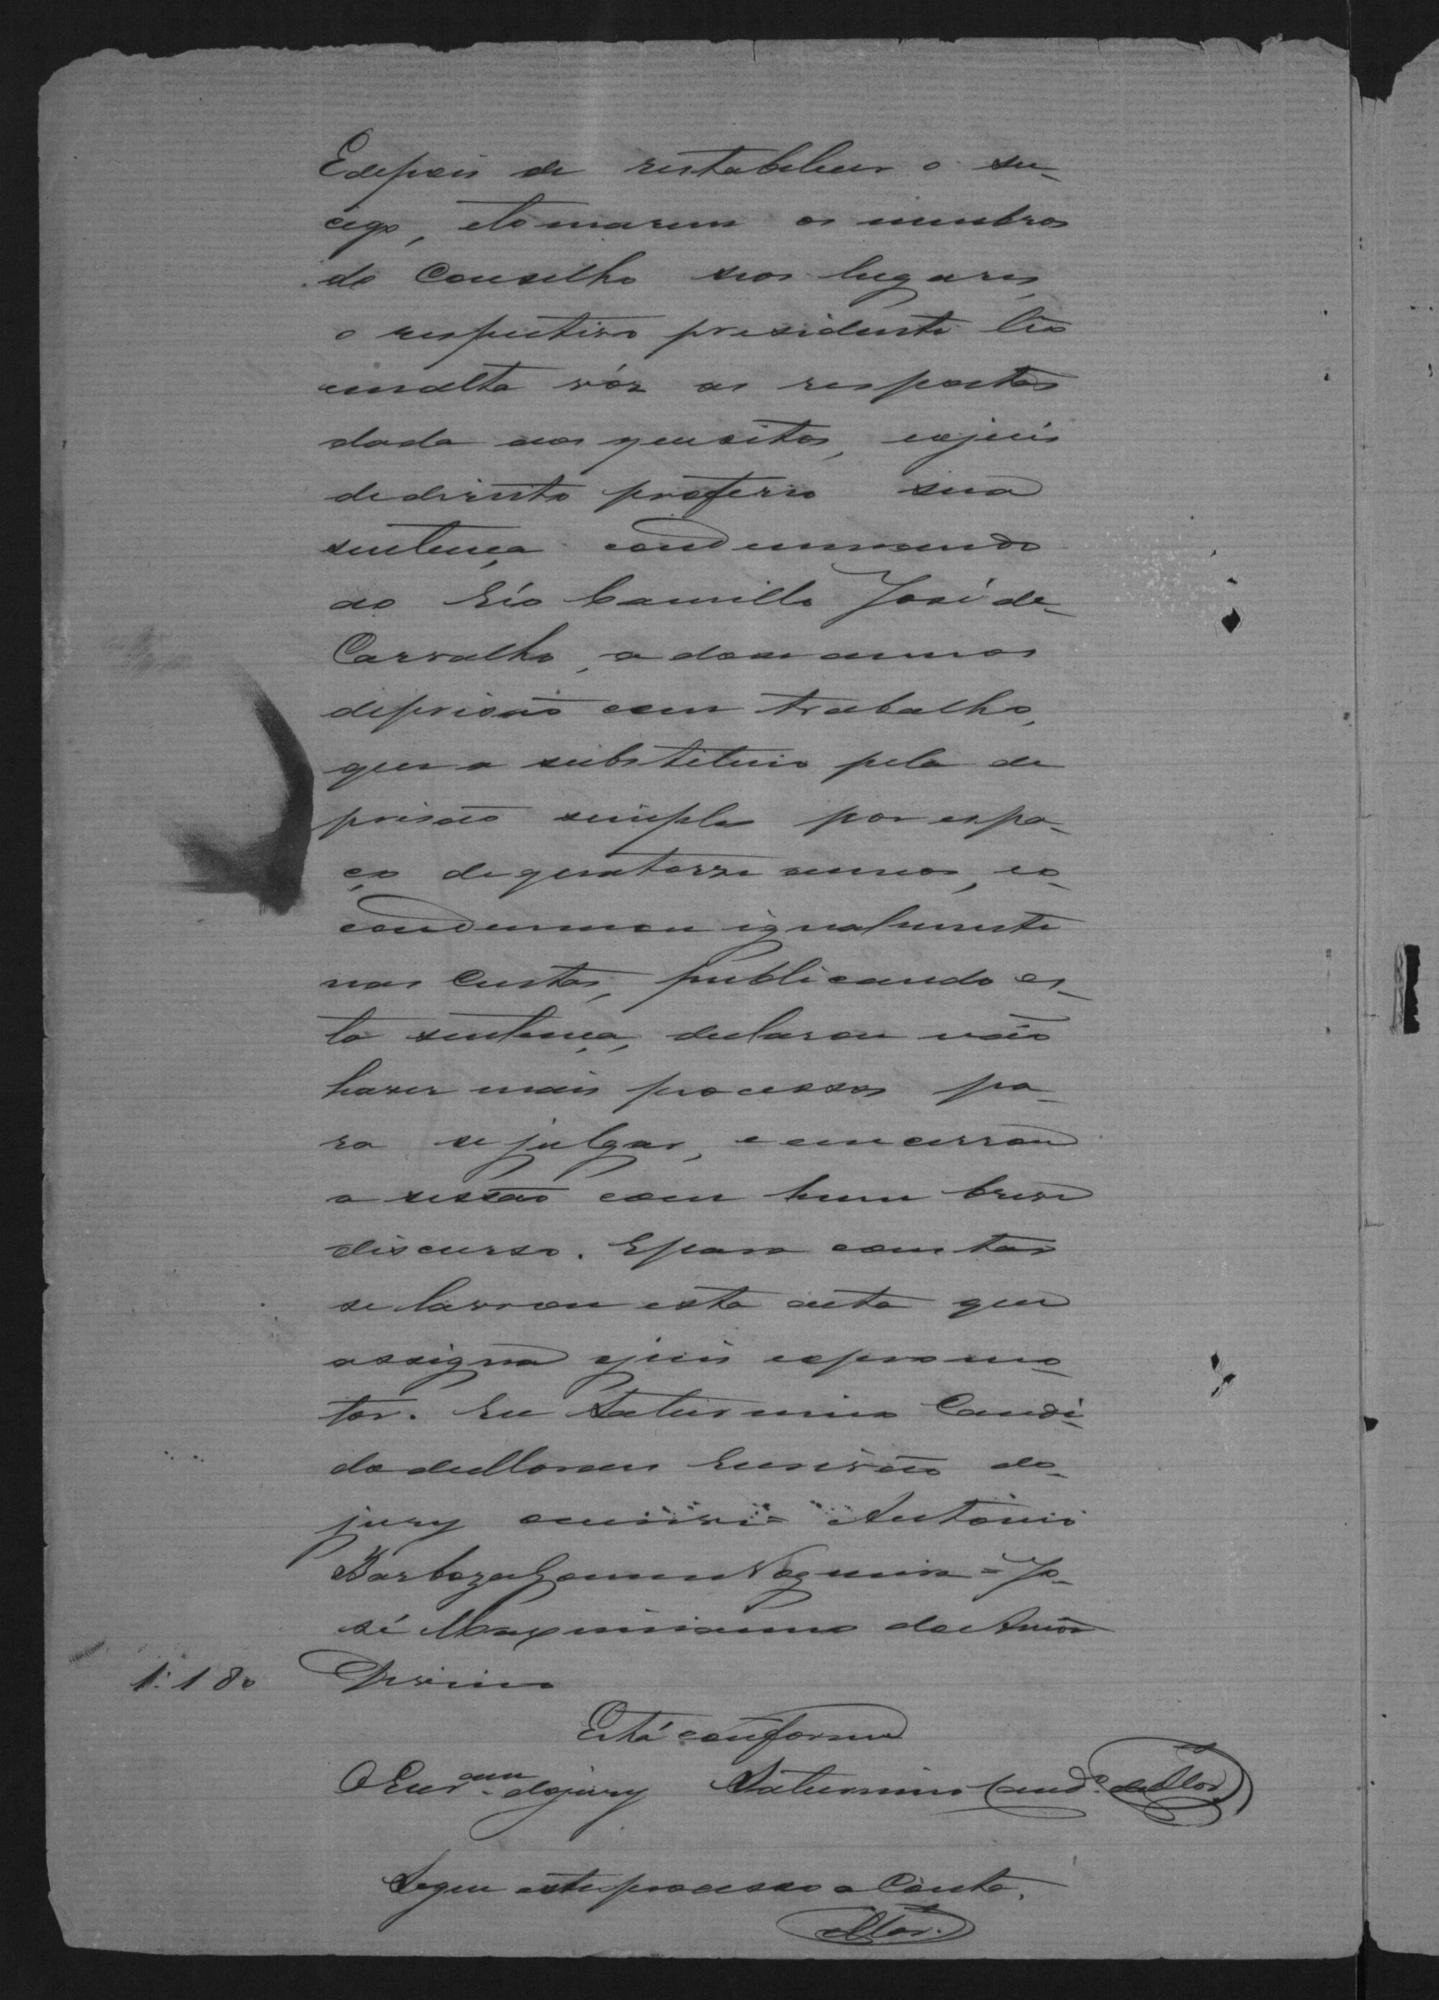 E depois de restabelecer o su-
cego, e tomarem os membros
do Conselho seos lugares,
o respectivo presidente lêo
em alta vóz as respostas
dada aos quesitos, e o juis
de direito proferio sua
sentença condemnando
ao Réo Camillo José de
Carvalho, a doze annos
de prisão com trabalho,
que a substituio pela de
prisão simples por espa-
ço de quatorze annos, e o
condemnou igualmente
nas Custas, publicando es-
ta sentença, declarou não
haver mais processos pa-
ra se julgar, e encerrou
a sessão com hum breve
discurso. E para constar
se lavrou esta acta que
assigna o juis e o promo-
tor. Eu Saturnino Candi-
do de Moraes Escrivão do
jury escrevi = Antonio
Barboza Gomes Nogueira = Jo-
sé Maximianno de Amor
1:180 Divino
Está conforme
O Escr.am do jury Saturnino Cand.o de Mor.
Segue este processo a Conta.
Mor.